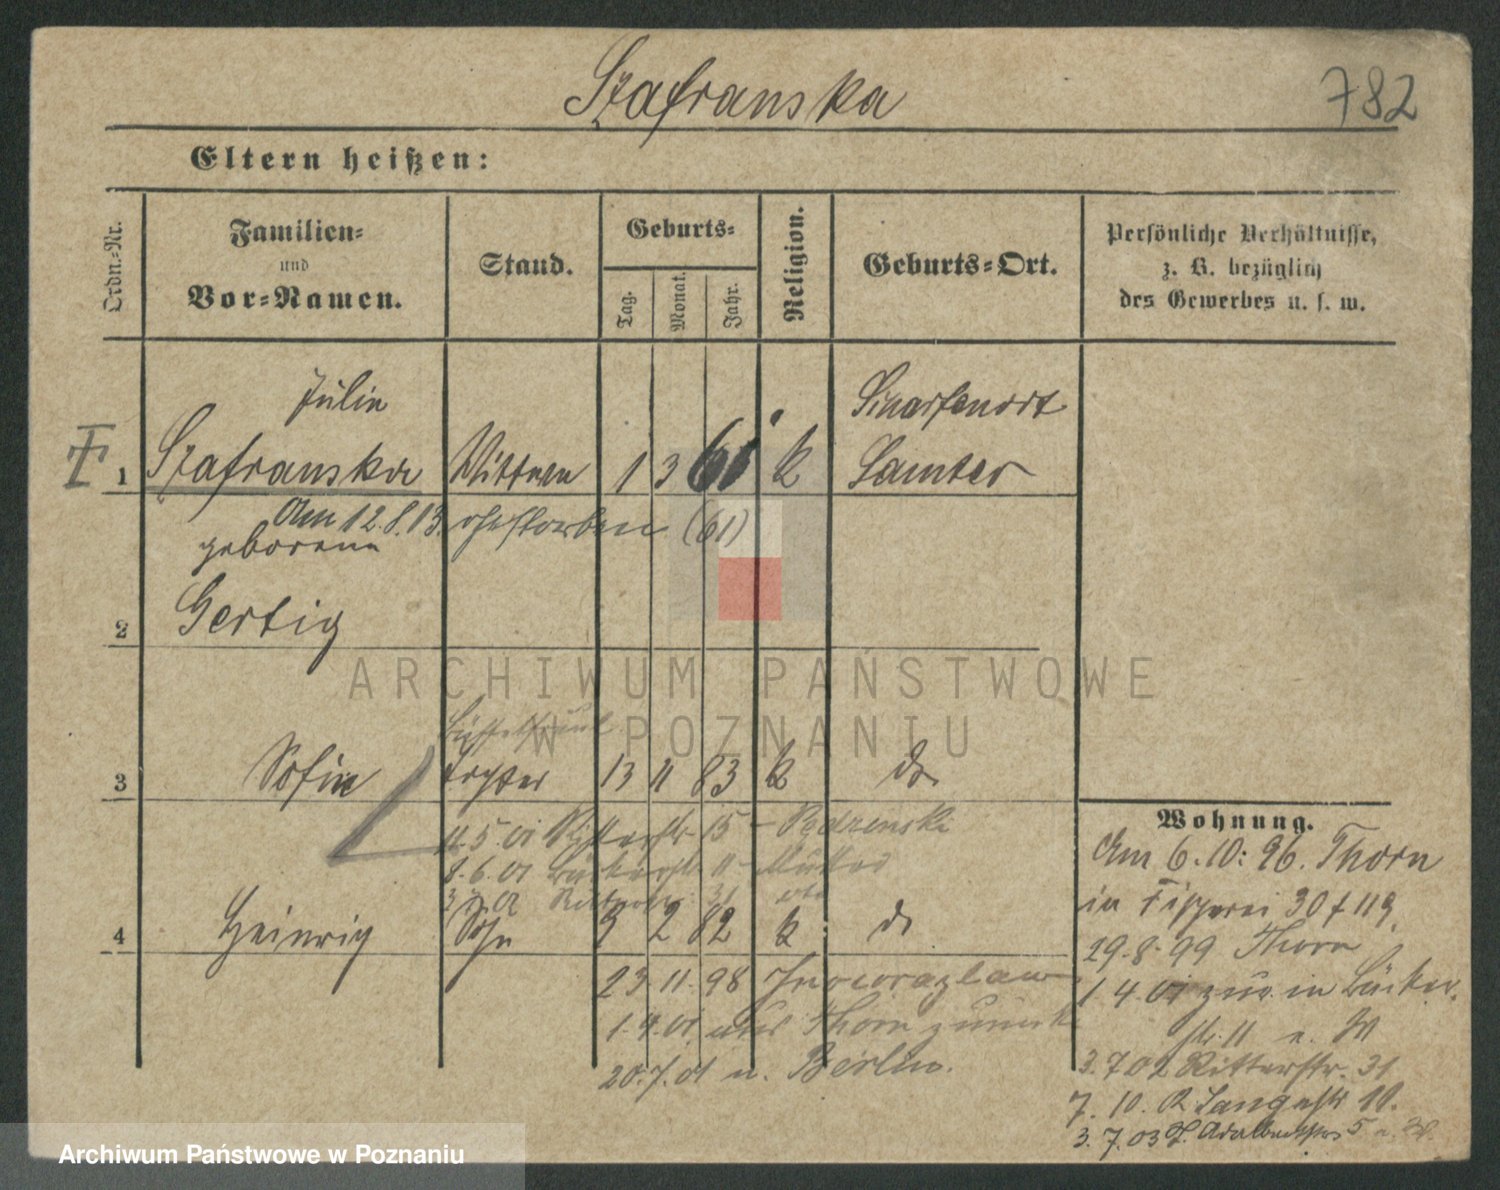 Szafranska
782
Eltern heißen:
Ordn.-Nr.
Familien-
und
Vor-Namen.
Stand.
Geburts-
Tag.
Monat.
Jahr.
Religion.
Geburts-Ort.
Persönliche Verhältnisse,
z. B. bezüglich
des Gewerbes u. s. w.
Julie
1 Szafranska Wittwe 1 3 61 k Scharfenort
Samter
Am 12.8.13. gestorben (61)
geborene
2 Gertig
3 Sofie Tochter 13 11 83 k do
11.5.01 Ritterstr 15 -
8.6.01 Bäckerstr 11 - Mutter
3.7.02 31
4 Heinrich Sohn 9 2 82 k do
23.11.98 Inowrazlaw
1.4.01 Thorn zurück
20.7.01 n. Berlin.
Wohnung.
Am 6.10.96. Thorn
in Fischerei 30
29.8.99 Thorn
1 4 01 zur. in Bäcker-
str. 11
3.7 02 Ritterstr. 31
7. 10. 02 Langestr 10.
3. 7.03 Adalbertstr 5
ARCHIWUM PAŃSTWOWE
W POZNANIU
Archiwum Państwowe w Poznaniu